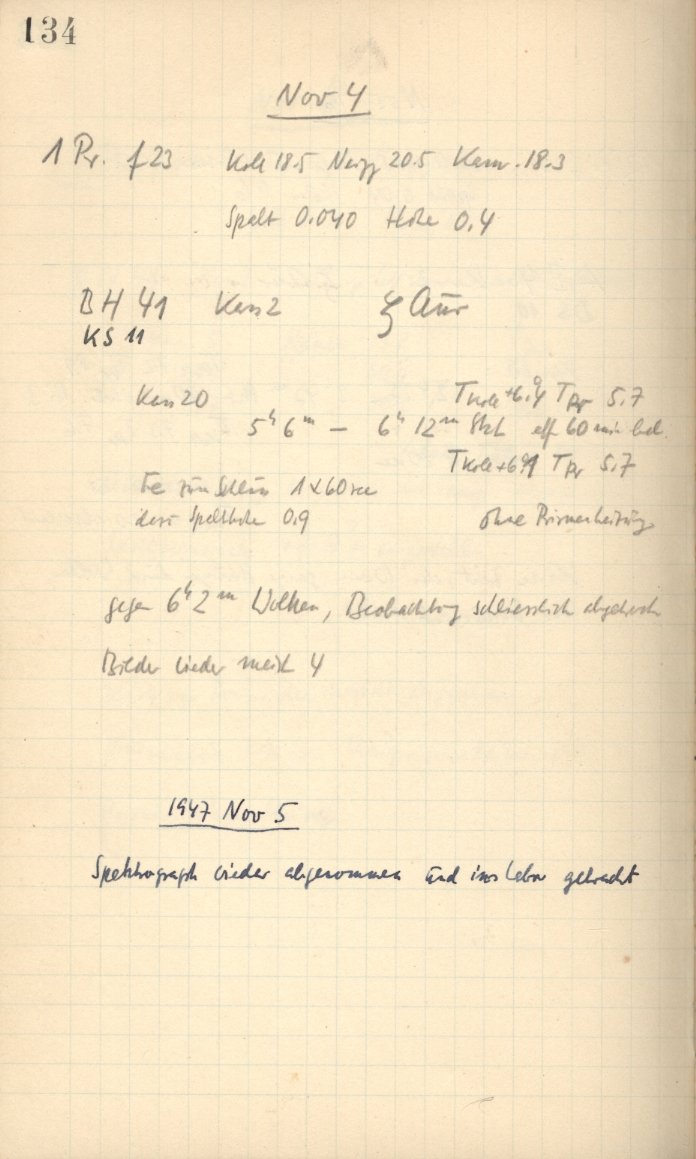 134
Nov 4
1 Pr. f23 Koll 18.5 Neigg 20.5 Kam. 18.3
Spalt 0.040 Höhe 0.4
BH 41 Kass 2 ζ Aur
KS 11
Kass 20 TKoll +6.4 TPr 5.7
5h 6m — 6h 12m eff 60 min bel.
TKoll +6.1 TPr 5.7
Fe zum Schluss 1x60 sec
dazu Spalthöhe 0.9 ohne Prismenheizung
gegen 6h 2m Wolken, Beobachtung schliesslich abgebroch
Bilder wieder meist 4
1947 Nov 5
Spektrograph wieder abgenommen und ins Labor gebracht